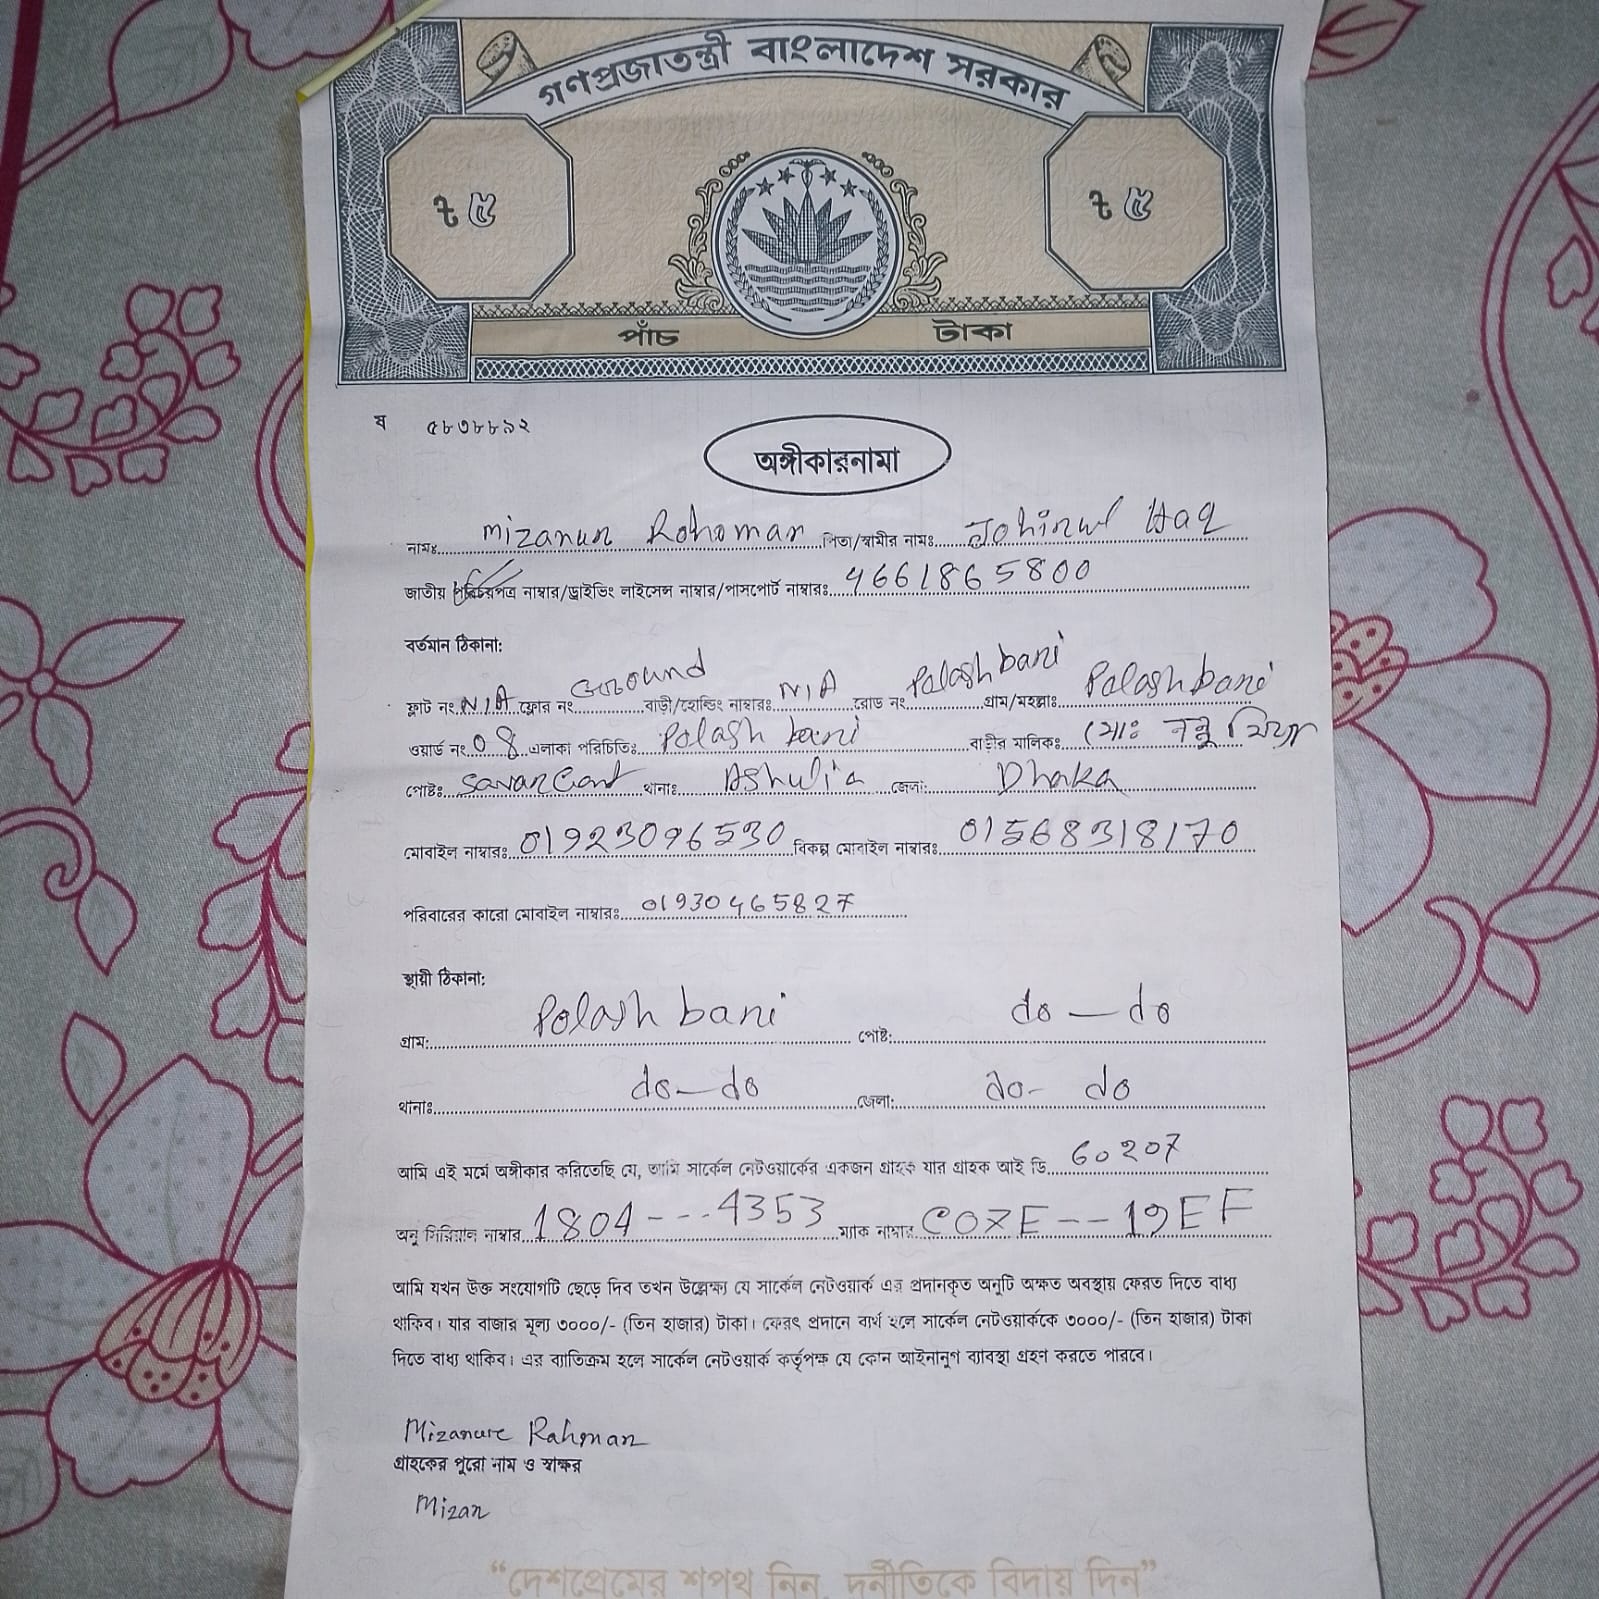 গণপ্রজাতন্ত্রী বাংলাদেশ সরকার
৳ ৫ ৳ ৫
পাঁচ টাকা
ষ ৫৮৩৮৮৯২
অঙ্গীকারনামা
নামঃ Mizanur Rohoman পিতা/স্বামীর নামঃ Johirul Haq
জাতীয় পরিচয়পত্র নাম্বার/ড্রাইভিং লাইসেন্স নাম্বার/পাসপোর্ট নাম্বারঃ 4661865800
বর্তমান ঠিকানা:
ফ্লাট নং N/A ফ্লোর নং Ground বাড়ী/হোল্ডিং নাম্বারঃ N/A রোড নং Palash bari গ্রাম/মহল্লাঃ Palash bari
ওয়ার্ড নং 08 এলাকা পরিচিতিঃ Polash bari বাড়ীর মালিকঃ মোঃ নন্নু মিয়া
পোষ্টঃ Savar Cant থানাঃ Ashulia জেলা: Dhaka
মোবাইল নাম্বারঃ 01923096530 বিকল্প মোবাইল নাম্বারঃ 01568318170
পরিবারের কারো মোবাইল নাম্বারঃ 01930465827
স্থায়ী ঠিকানা:
গ্রাম: Polash bari পোষ্ট: do — do
থানাঃ do — do জেলা: do - do
আমি এই মর্মে অঙ্গীকার করিতেছি যে, আমি সার্কেল নেটওয়ার্কের একজন গ্রাহক যার গ্রাহক আই ডি 60207
অনু সিরিয়াল নাম্বার 1804---4353 ম্যাক নাম্বার C07E--19EF
আমি যখন উক্ত সংযোগটি ছেড়ে দিব তখন উল্লেক্ষ্য যে সার্কেল নেটওয়ার্ক এর প্রদানকৃত অনুটি অক্ষত অবস্থায় ফেরত দিতে বাধ্য
থাকিব। যার বাজার মূল্য ৩০০০/- (তিন হাজার) টাকা। ফেরৎ প্রদানে ব্যর্থ হলে সার্কেল নেটওয়ার্ককে ৩০০০/- (তিন হাজার) টাকা
দিতে বাধ্য থাকিব। এর ব্যাতিক্রম হলে সার্কেল নেটওয়ার্ক কর্তৃপক্ষ যে কোন আইনানুগ ব্যাবস্থা গ্রহণ করতে পারবে।
Mizanure Rahman
গ্রাহকের পুরো নাম ও স্বাক্ষর
Mizan
“দেশপ্রেমের শপথ নিন, দুর্নীতিকে বিদায় দিন”